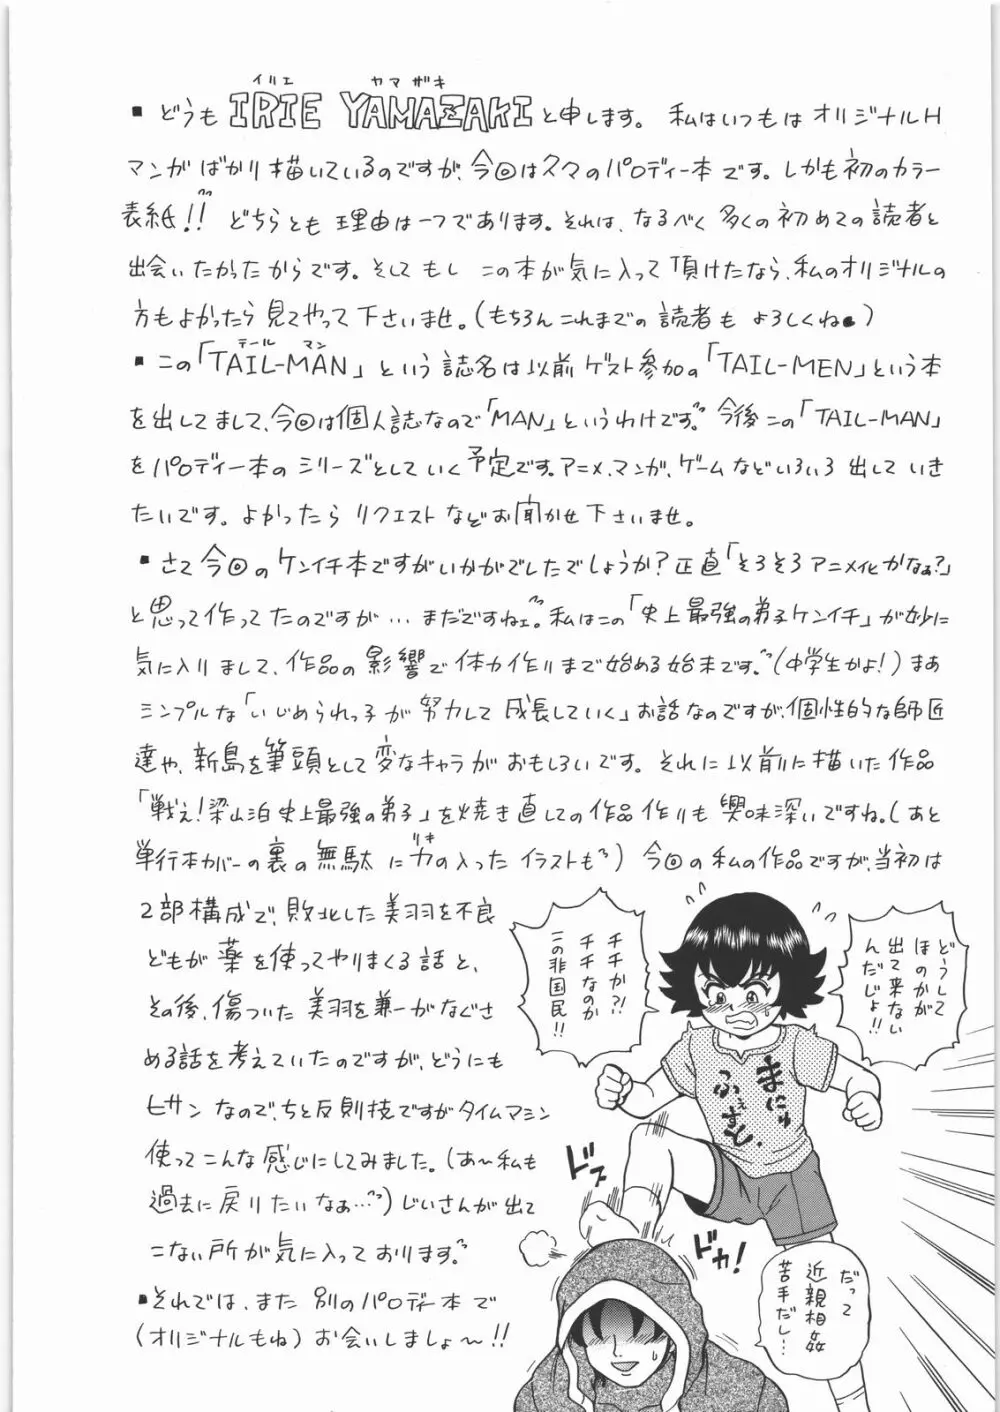 イリエ ヤマザキ
▪どうも IRIE YAMAZAKI と申します。私はいつもはオリジナルH
マンガばかり描いているのですが、今回は久々のパロディー本です。しかも初のカラー
表紙!! どちらとも理由は一つであります。それは、なるべく多くの初めての読者と
出会いたかったからです。そしてもし この本が気に入って頂けたなら、私のオリジナルの
方もよかったら見てやって下さいませ。(もちろんこれまでの読者も よろしくね)
テール マン
▪この「TAIL-MAN」という誌名は以前ゲスト参加の「TAIL-MEN」という本
を出してまして、今回は個人誌なので「MAN」というわけです。今後この「TAIL-MAN」
をパロディー本のシリーズとしていく予定です。アニメ、マンガ、ゲームなどいろいろ出していき
たいです。よかったら リクエストなどお聞かせ下さいませ。
▪さて今回のケンイチ本ですがいかがでしたでしょうか?正直「そろそろアニメ化かなぁ?」
と思って作ってたのですが…まだですねェ。私はこの「史上最強の弟子ケンイチ」が妙に
気に入りまして、作品の影響で体力作りまで始める始末です。(中学生かよ!)まあ
シンプルな「いじめられっ子が努力して成長していく」お話なのですが、個性的な師匠
達や、新島を筆頭として変なキャラがおもしろいです。それに以前に描いた作品
「戦え!梁山泊史上最強の弟子」を焼き直しての作品作りも興味深いですね。(あと
単行本カバーの裏の無駄に力の入ったイラストも)今回の私の作品ですが、当初は
リキ
2部構成で、敗北した美羽を不良
どもが薬を使ってやりまくる話と、
その後、傷ついた美羽を兼一がなぐさ
める話を考えていたのですが、どうにも
ヒサンなので、ちと反則技ですがタイムマシン
使ってこんな感じにしてみました。(あ〜私も
過去に戻りたいなぁ…)じいさんが出て
こない所が気に入っております。
▪それでは、また別のパロディー本で
(オリジナルもね)お会いしましょ〜!!
どうして
ほのかが
出て来ない
んだじょ!!
チチか?!
チチなのか
この非国民!!
まにゅ
ふぇすと、
ドズ
ドカ!
だって
近親相姦
苦手だし…